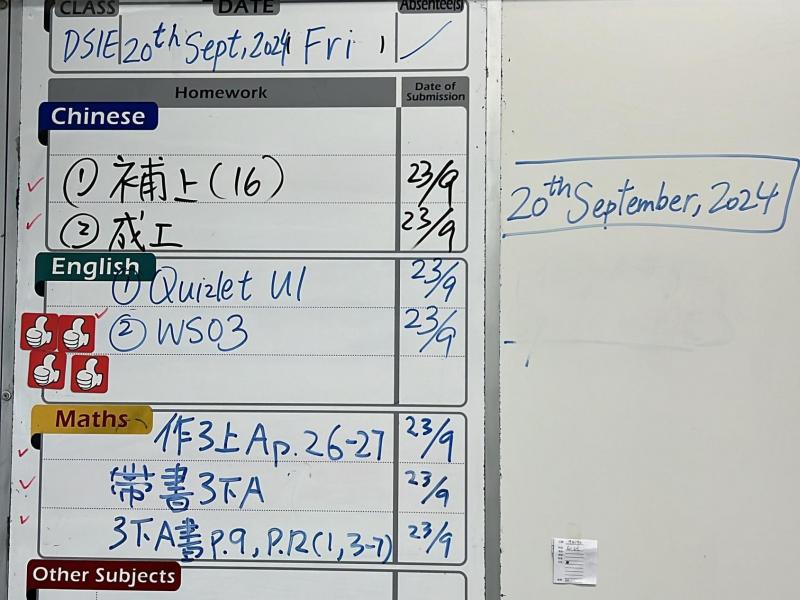 CLASS DATE Absentee(s)
DSIE 20th Sept, 2024 Fri
Homework Date of Submission
Chinese
① 補上(16) 23/9
② 成工 23/9
English
① Quizlet U1 23/9
② WS03 23/9
Maths
作3上A p.26-27 23/9
帶書3下A 23/9
3下A書 P.9, P.12(1,3-7) 23/9
Other Subjects
20th September, 2024